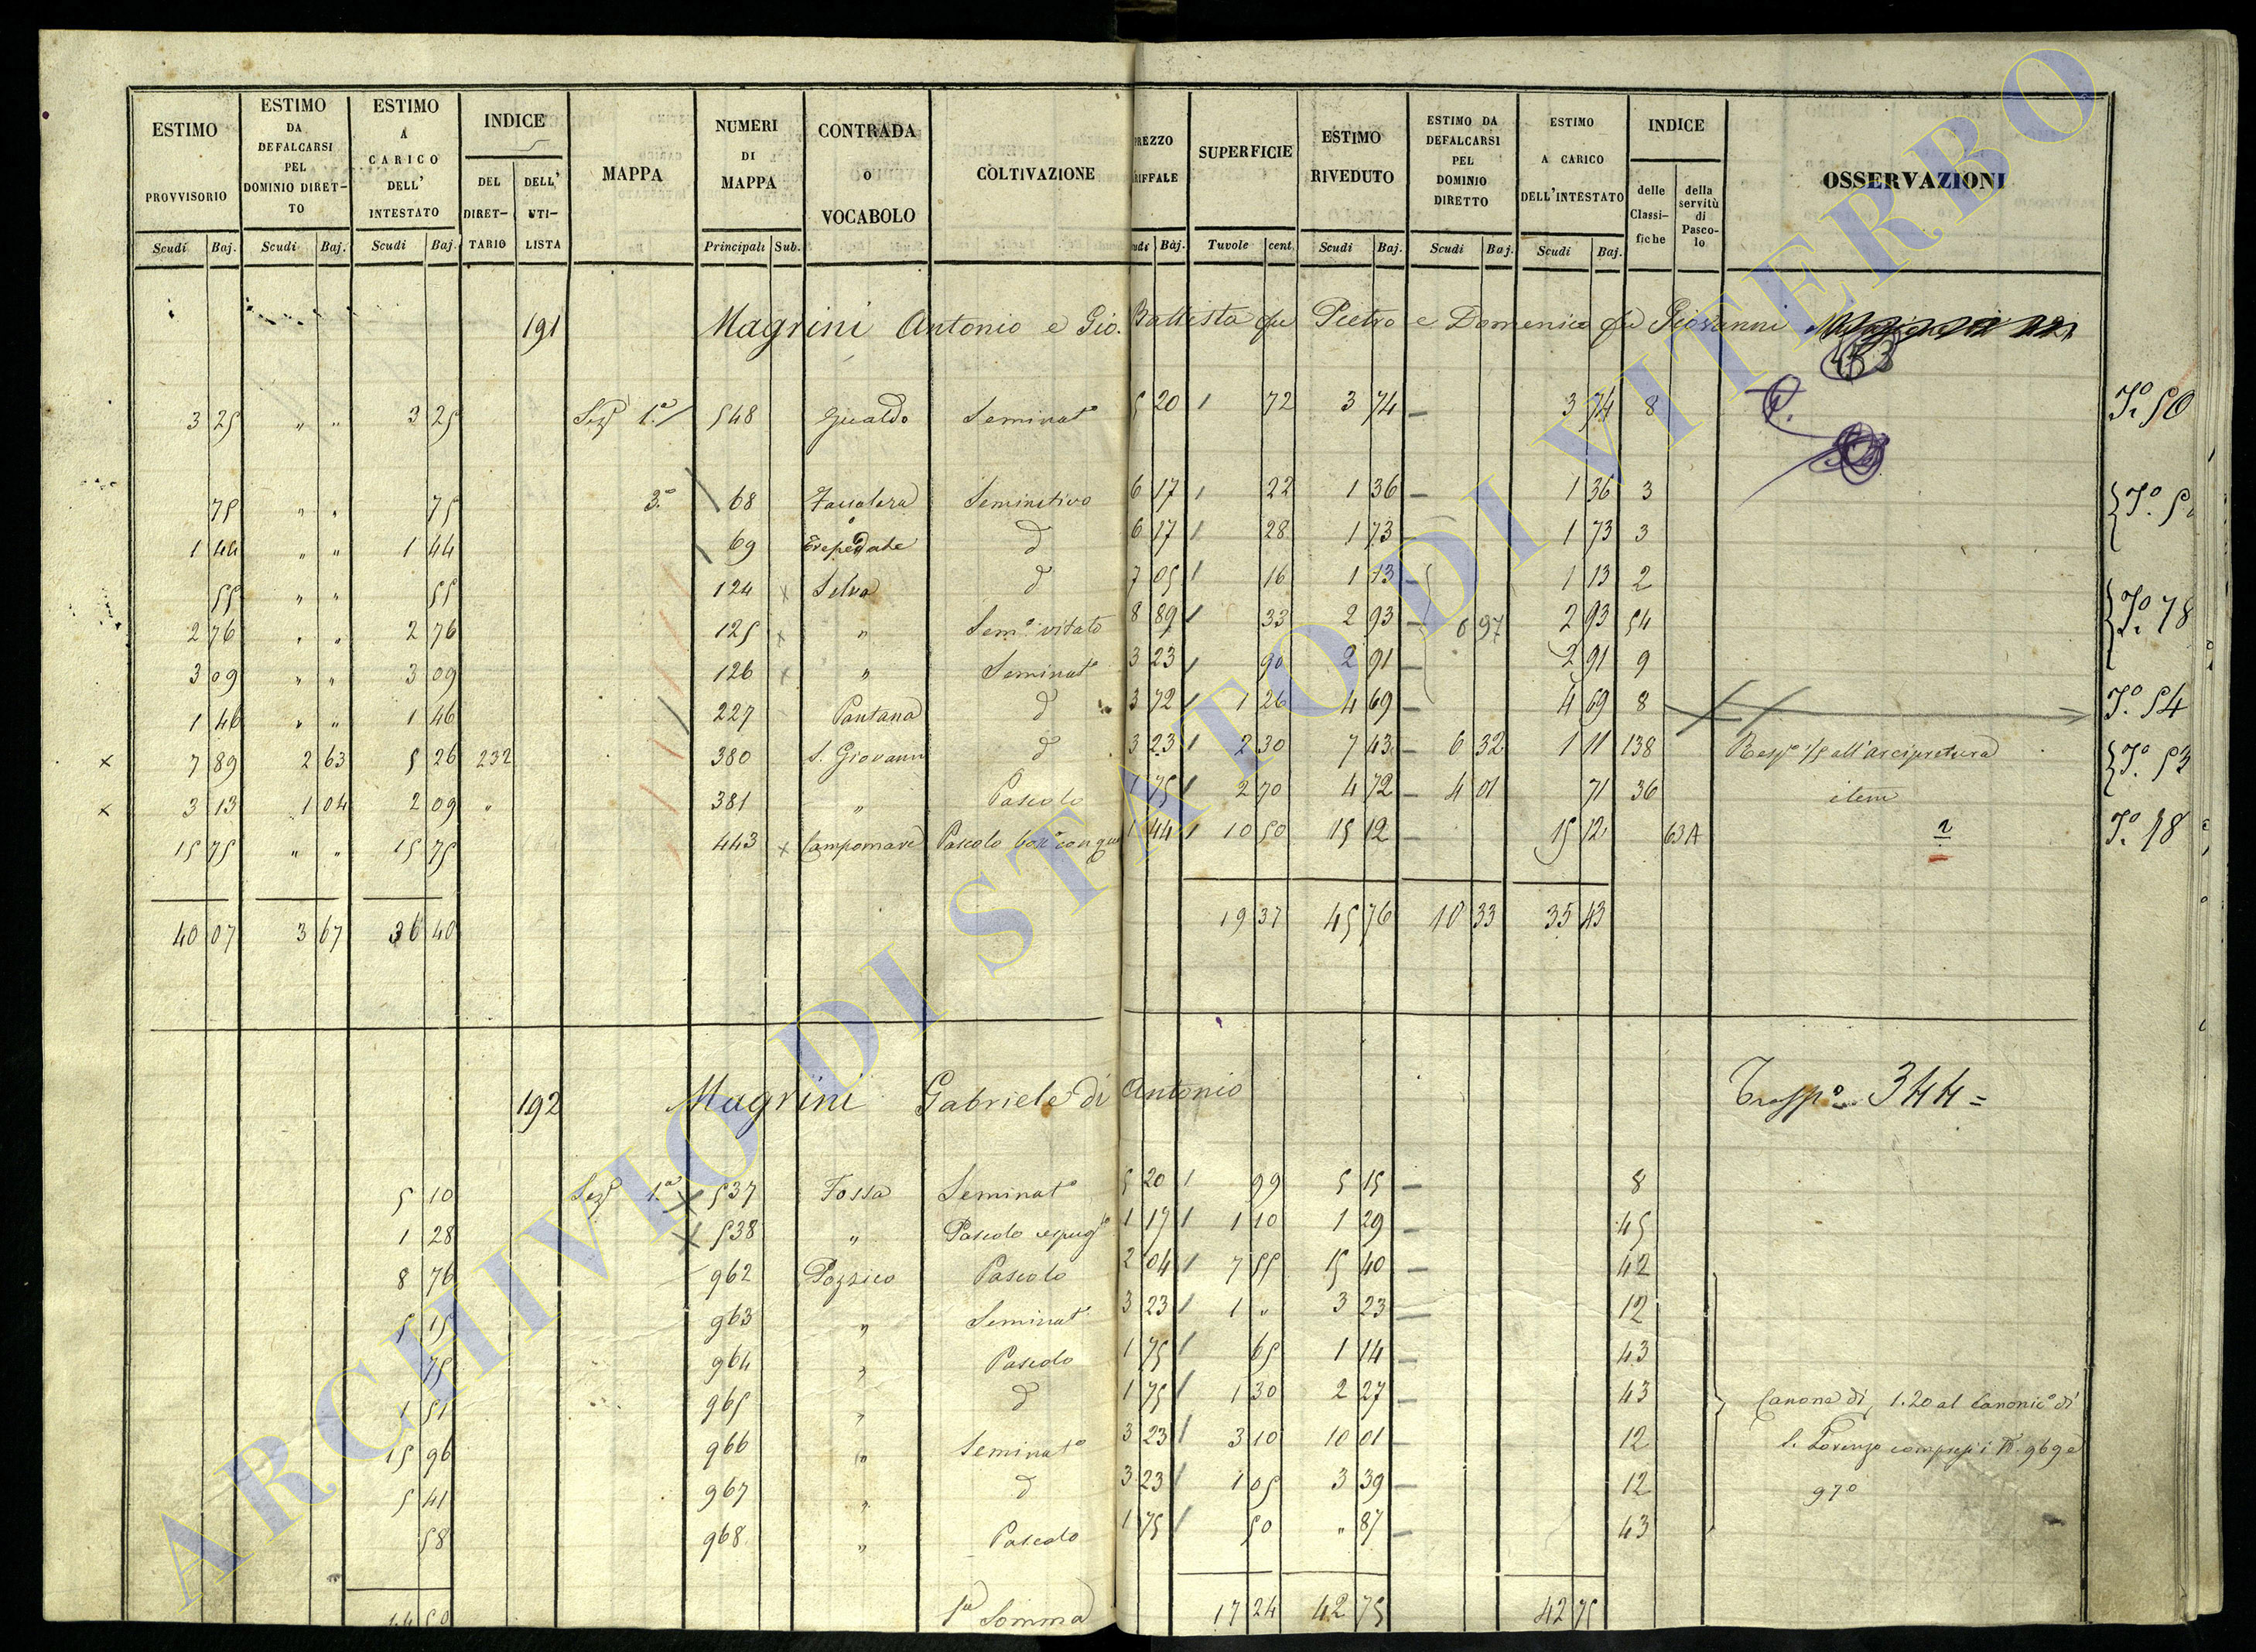 ESTIMO PROVVISORIO Scudi Baj. | ESTIMO DA DEFALCARSI PEL DOMINIO DIRET-TO Scudi Baj. | ESTIMO A CARICO DELL' INTESTATO Scudi Baj. | INDICE DEL DIRET-TARIO | DELL' UTI-LISTA | MAPPA | NUMERI DI MAPPA Principali Sub. | CONTRADA O VOCABOLO | COLTIVAZIONE | PREZZO Baj. | SUPERFICIE Tavole cent. | ESTIMO RIVEDUTO Scudi Baj. | ESTIMO DA DEFALCARSI PEL DOMINIO DIRETTO Scudi Baj. | ESTIMO A CARICO DELL'INTESTATO Scudi Baj. | INDICE delle Classi-fiche | della servitù di Pasco-lo | OSSERVAZIONI
191 Magrini Antonio e Gio. Battista fu Pietro e Domenico fu Giovanni
3 25 " " 3 25 Sez. 1.a 548 Gualdo Seminat.o 5 20 1 72 3 74 3 74 8 T.o 50
75 " " 75 3.a 68 Seminativo 6 17 22 1 36 1 36 3
1 44 " " 1 44 69 d 6 17 28 1 73 1 73 3
55 " " 55 124 x Selva d 7 05 16 1 13 1 13 2
2 76 " " 2 76 125 x " Sem.o vitato 8 89 33 2 93 6 97 2 93 54 T.o 78
3 09 " " 3 09 126 x " Seminat.o 3 23 90 2 91 2 91 9
1 46 " " 1 46 227 Pantana d 3 72 1 26 4 69 4 69 8 T.o 54
x 7 89 2 63 5 26 232 380 S. Giovanni d 3 23 2 30 7 43 6 32 1 11 138 Risp. 1/5 all'arcipretura T.o 53
x 3 13 1 04 2 09 " 381 " Pascolo 1 75 2 70 4 72 4 01 71 36 idem
15 75 " " 15 75 443 x Campomare Pascolo 1 44 10 50 15 12 15 12 63A 2 T.o 18
40 07 3 67 36 40 19 37 45 76 10 33 35 43
192 Magrini Gabriele di Antonio Trasp.o 344 =
5 10 Sez. 1.a x 537 Fossa Seminat.o 5 20 99 5 15 8
1 28 x 538 " Pascolo cespug.o 1 17 1 10 1 29 45
8 76 962 Pozzico Pascolo 2 04 7 55 15 40 42
5 15 963 " Seminat.o 3 23 1 " 3 23 12
75 964 " Pascolo 1 75 65 1 14 43
1 51 965 " d 1 75 1 30 2 27 43 Canone di 1.20 al Canonic.o di
15 96 966 " Seminat.o 3 23 3 10 10 01 12 S. Lorenzo compresi i N. 969 e
5 41 967 " d 3 23 1 05 3 39 12 970
58 968 " Pascolo 1 75 50 " 87 43
44 50 Somma 17 24 42 75 42 75
ARCHIVIO DI STATO DI VITERBO